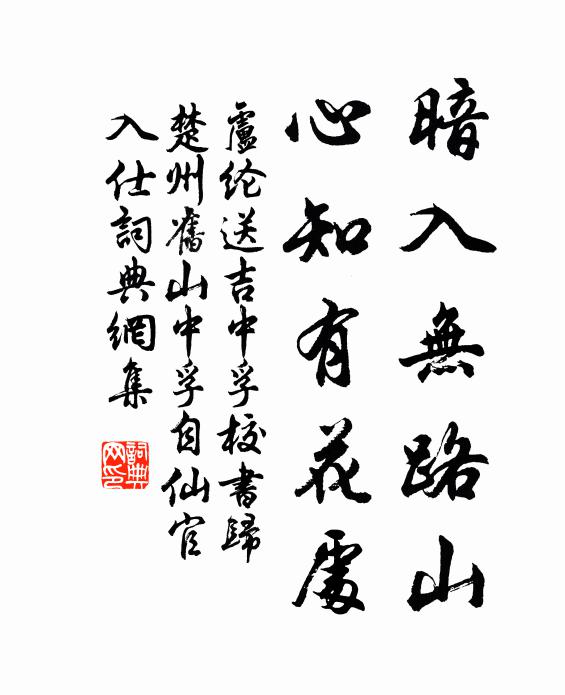 暗入無路山
心知有花處
盧纶送吉中孚校書歸
楚州舊山中孚自仙官
入仕詞典網集
詞典網印